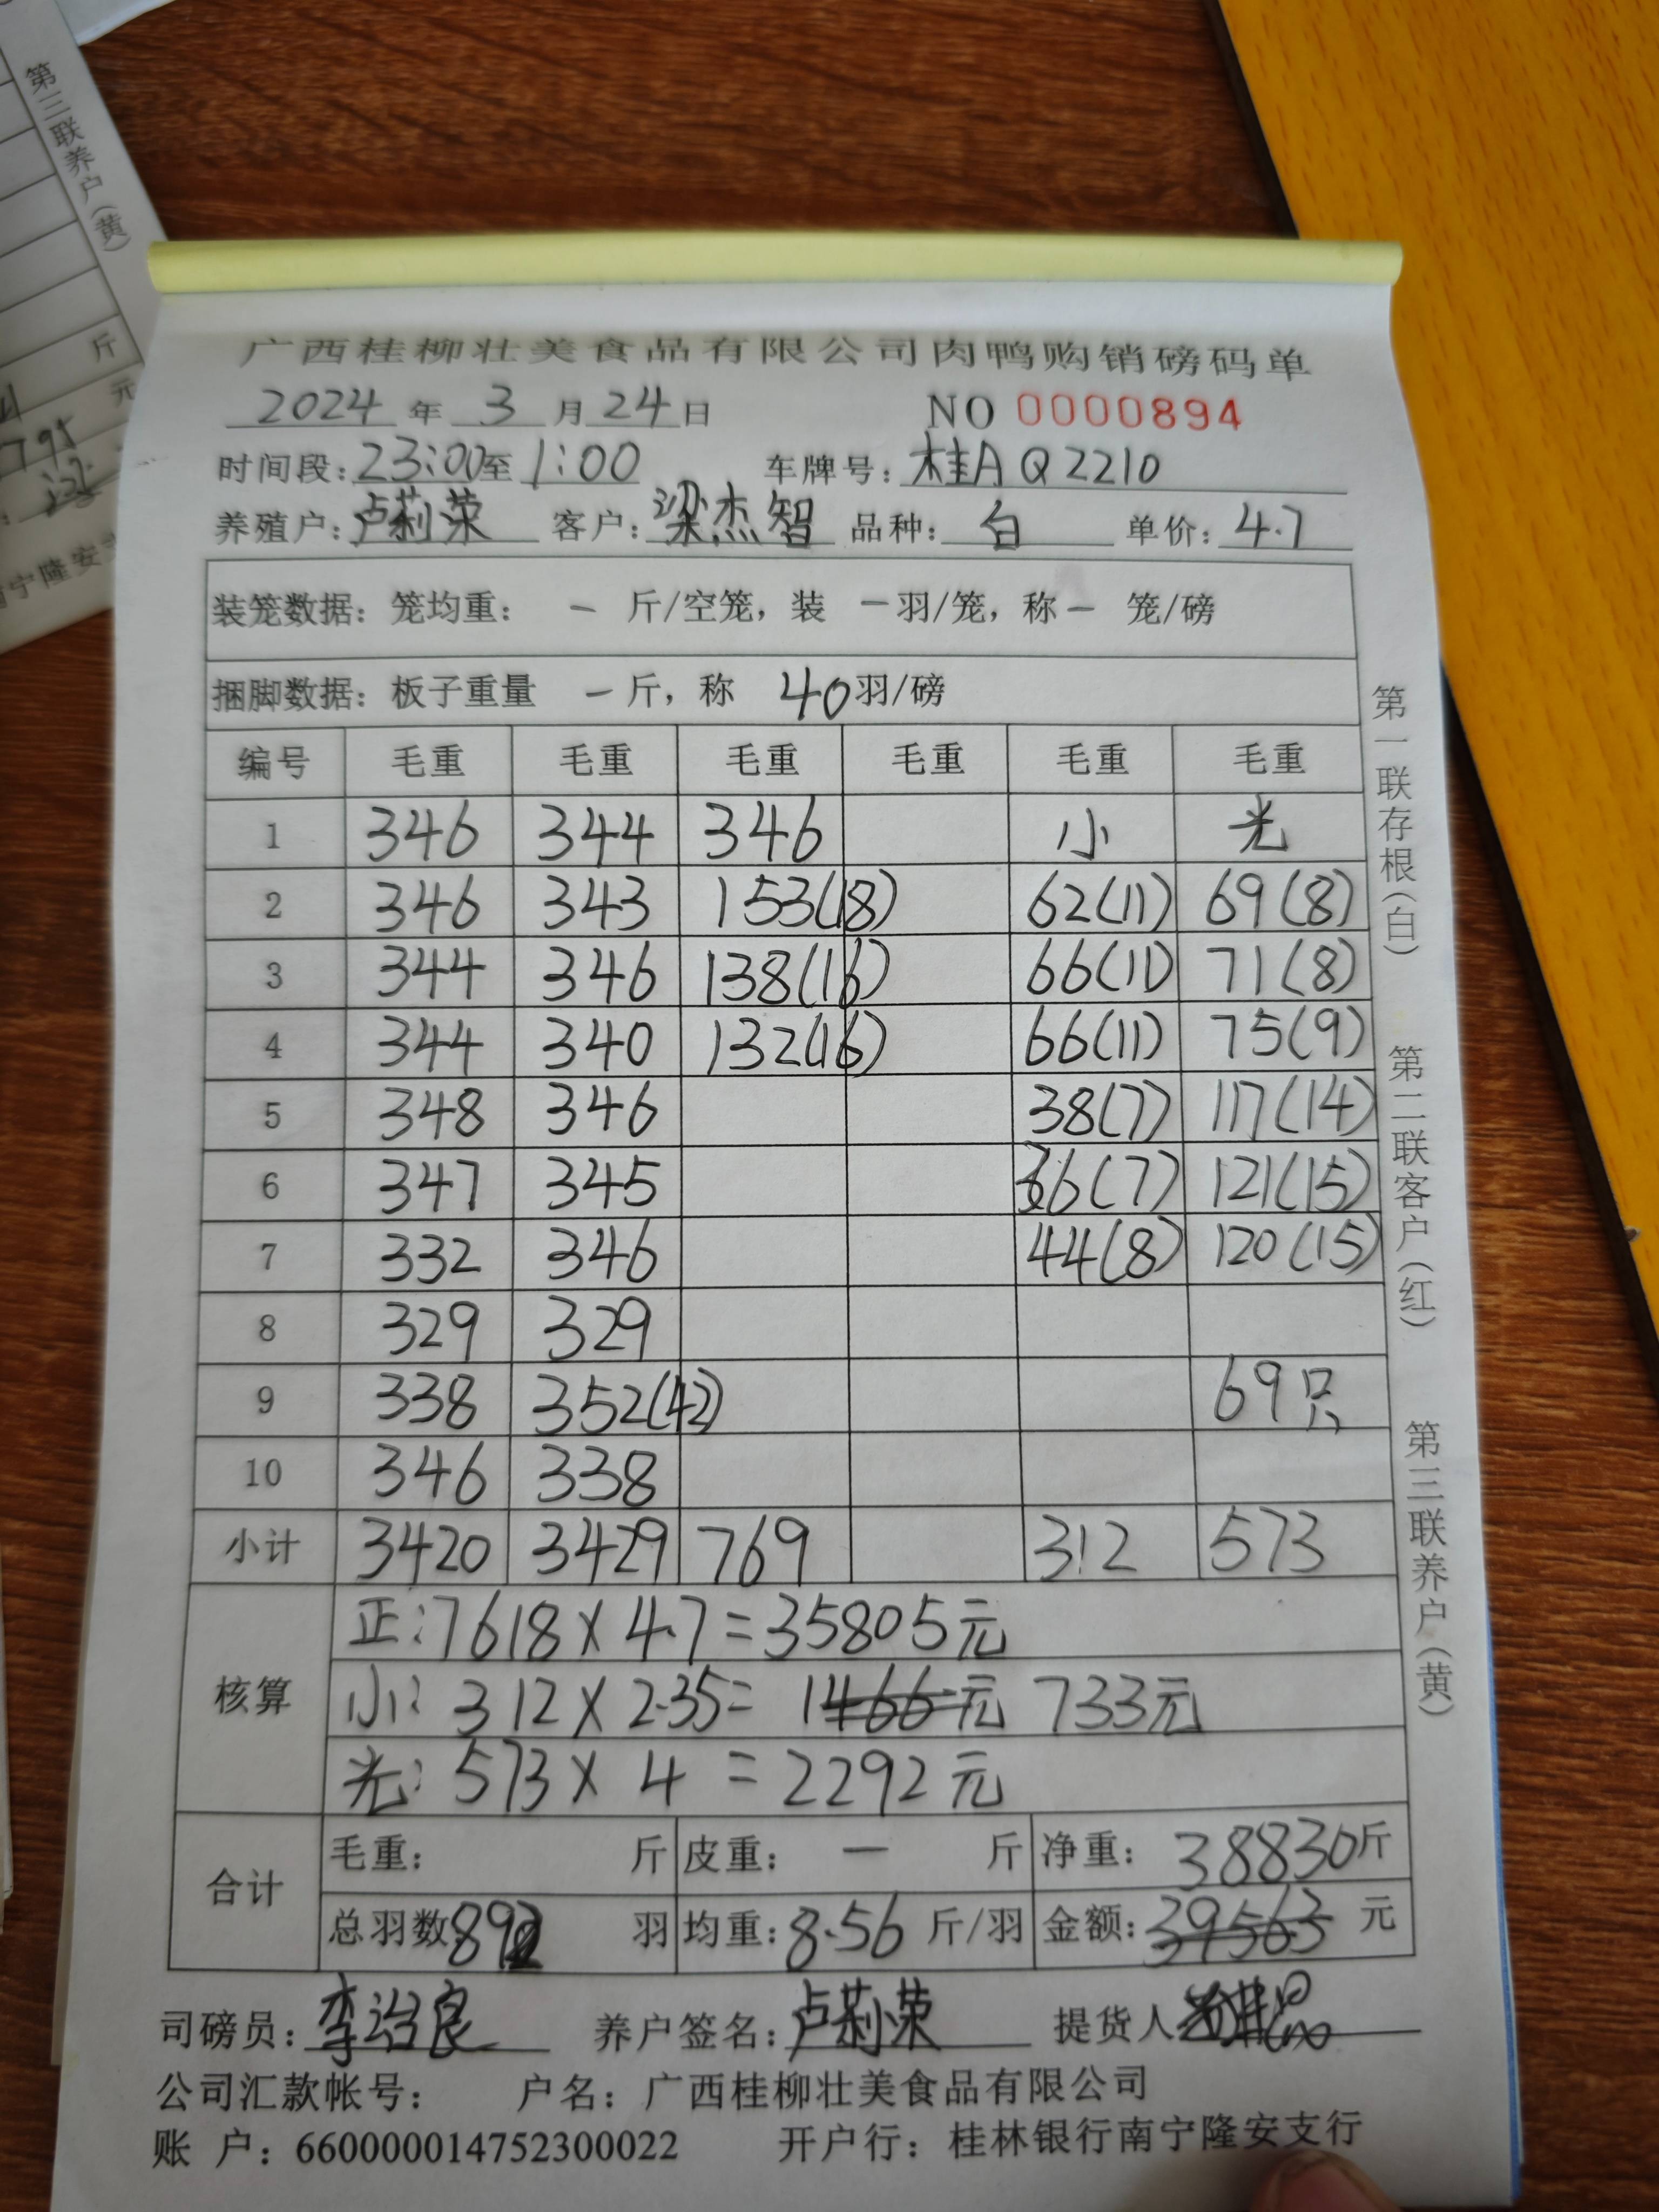 第三联养户(黄)
斤
元
广西桂柳壮美食品有限公司肉鸭购销磅码单
2024年3月24日 NO 0000894
时间段:23:00至1:00 车牌号:桂AQ2210
养殖户:卢莉荣 客户:梁杰智 品种:白 单价:4.7
装笼数据:笼均重: — 斤/空笼,装 — 羽/笼,称 — 笼/磅
捆脚数据:板子重量 — 斤,称 40羽/磅
编号 毛重 毛重 毛重 毛重 毛重 毛重
1 346 344 346 小 光
2 346 343 153(18) 62(11) 69(8)
3 344 346 138(16) 66(11) 71(8)
4 344 340 132(16) 66(11) 75(9)
5 348 346 38(7) 117(14)
6 347 345 36(7) 121(15)
7 332 346 44(8) 120(15)
8 329 329
9 338 352(42) 69只
10 346 338
小计 3420 3429 769 312 573
核算
正:7618×4.7=35805元
小:312×2.35=1466元 733元
光:573×4=2292元
合计
毛重: 斤 皮重: — 斤 净重:38830斤
总羽数:892羽 均重:8.56斤/羽 金额:39563元
司磅员:李治良 养户签名:卢莉荣 提货人
公司汇款帐号: 户名:广西桂柳壮美食品有限公司
账 户:660000014752300022 开户行:桂林银行南宁隆安支行
第一联存根(白) 第二联客户(红) 第三联养户(黄)